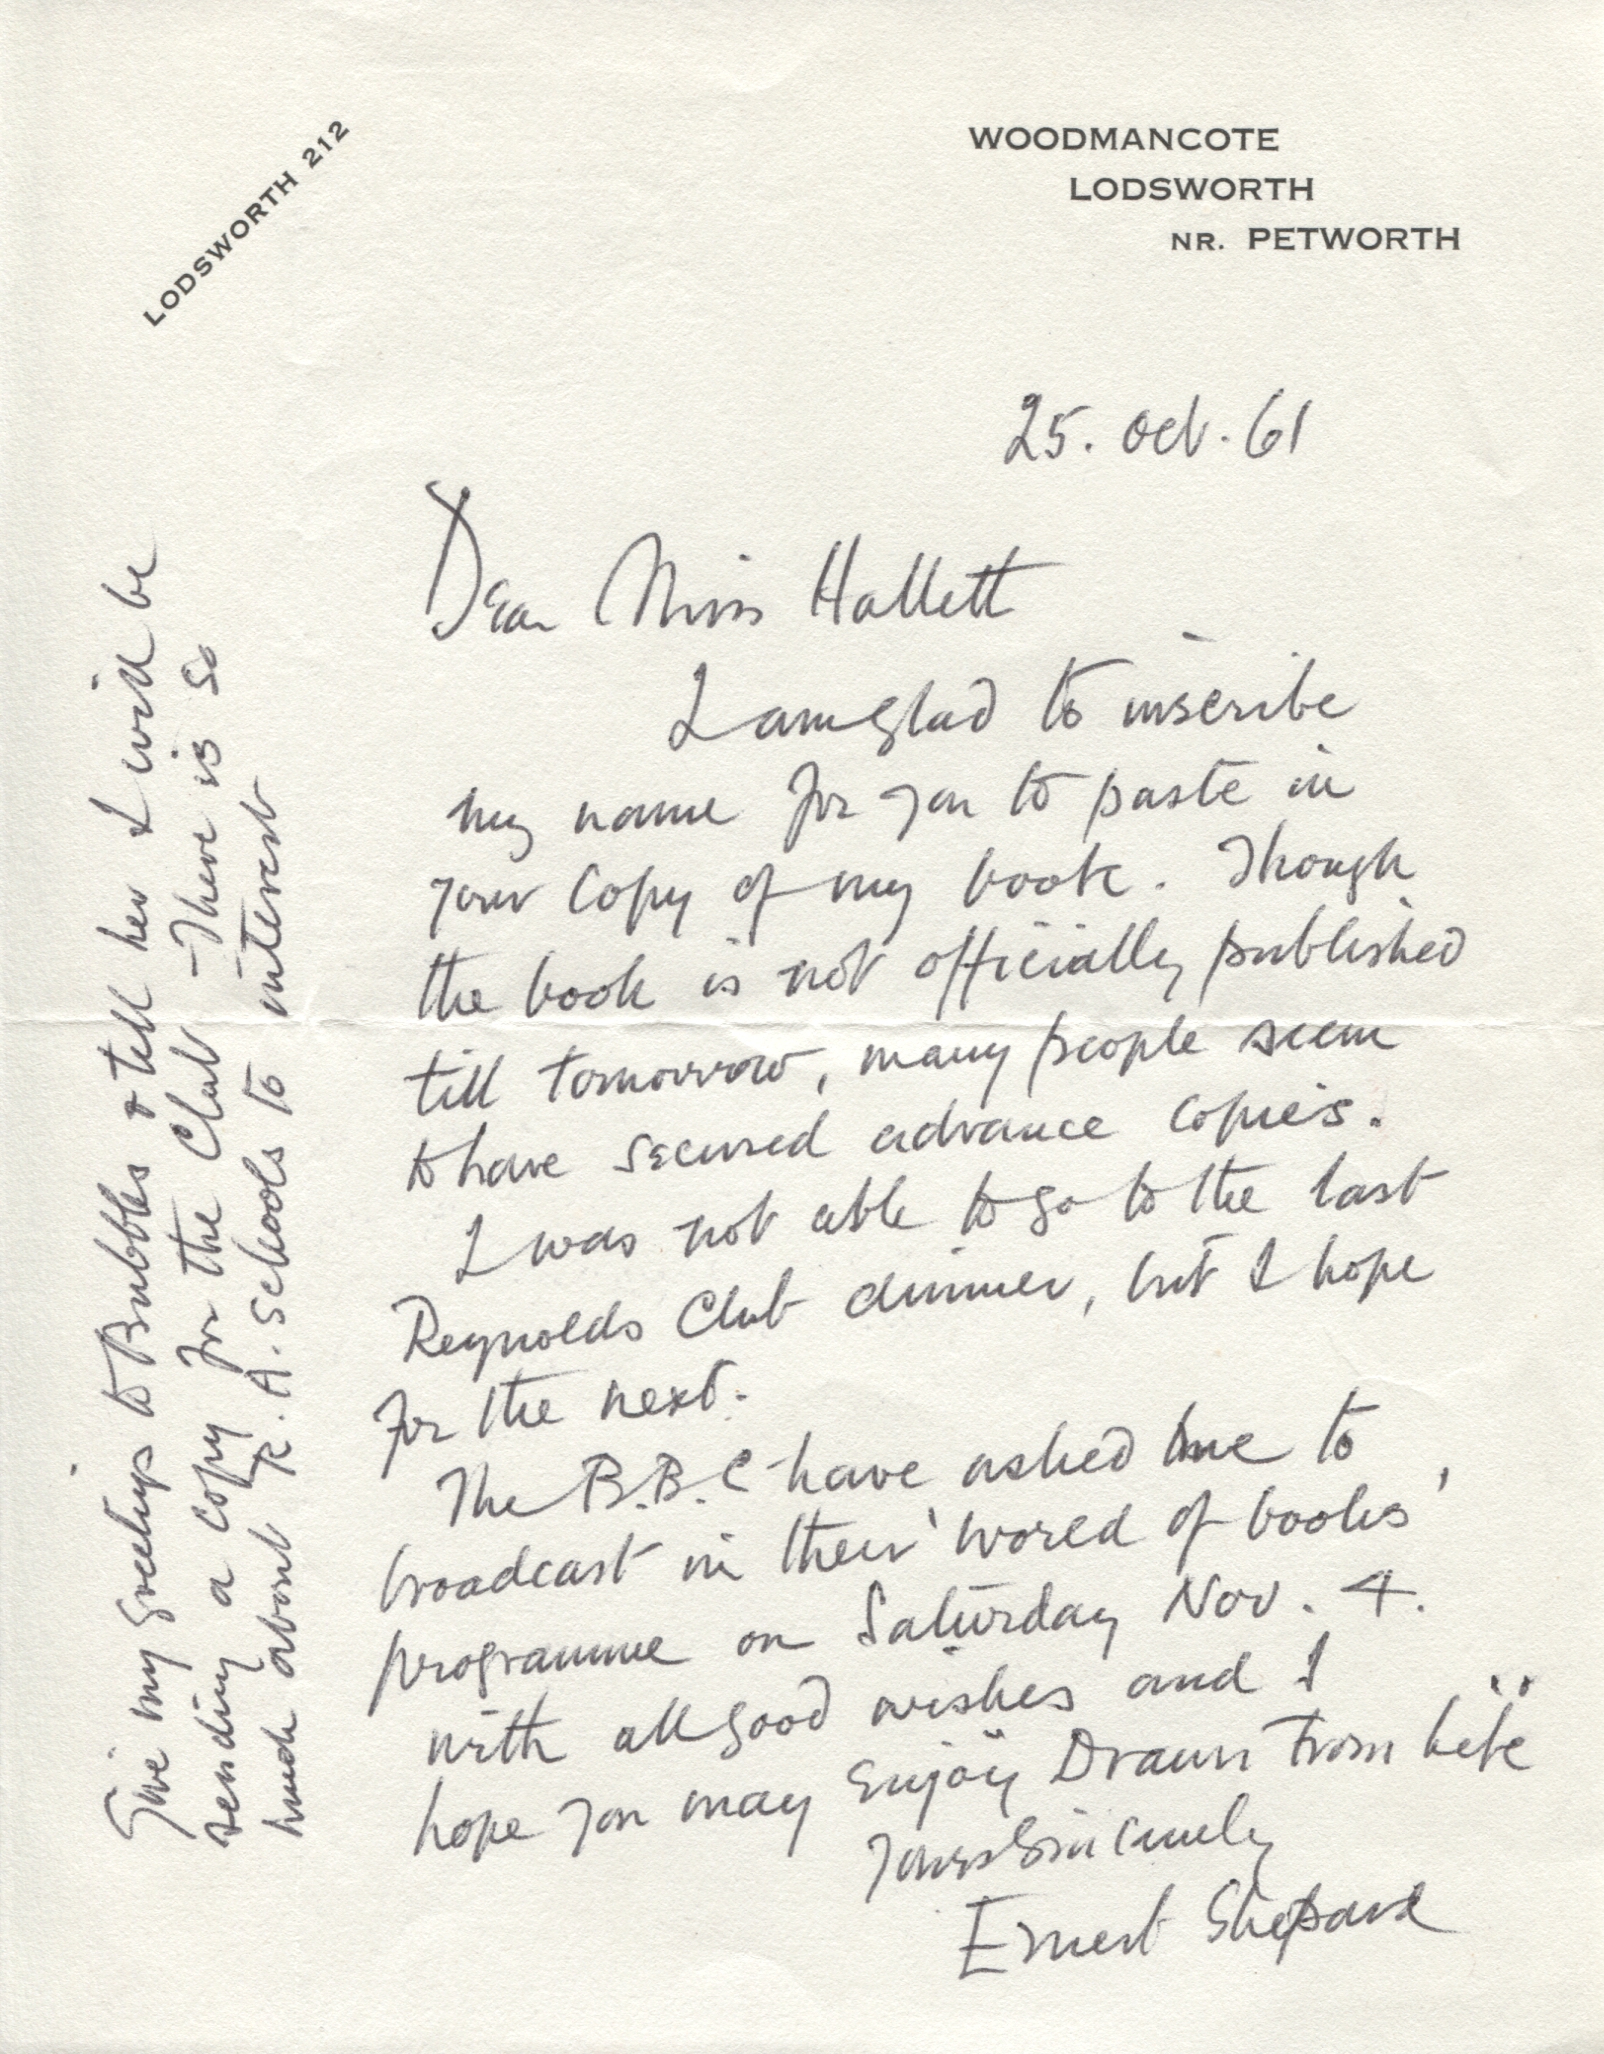 LODSWORTH 212
WOODMANCOTE
LODSWORTH
NR. PETWORTH
25. Oct. 61
Dear Miss Hallett
I am glad to inscribe
my name for you to paste in
your copy of my book. Though
the book is not officially published
till tomorrow, many people seem
to have secured advance copies.
I was not able to go to the last
Reynolds Club dinner, but I hope
for the next.
The B.B.C have asked me to
broadcast in their 'World of books'
programme on Saturday Nov. 4.
with all good wishes and I
hope you may enjoy "Drawn from Life"
Yours Sincerely
Ernest Shepard
Give my greetings to Bubbles & tell her I will be
sending a copy for the Club - There is so
much about R.A. Schools to interest